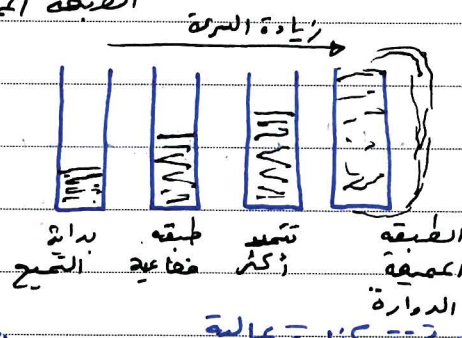 الطبقة
زيادة السرعة
بداية التميع
طبقة فقاعية
تتمدد أكثر
الطبقة المميعة الدوارة
عالية